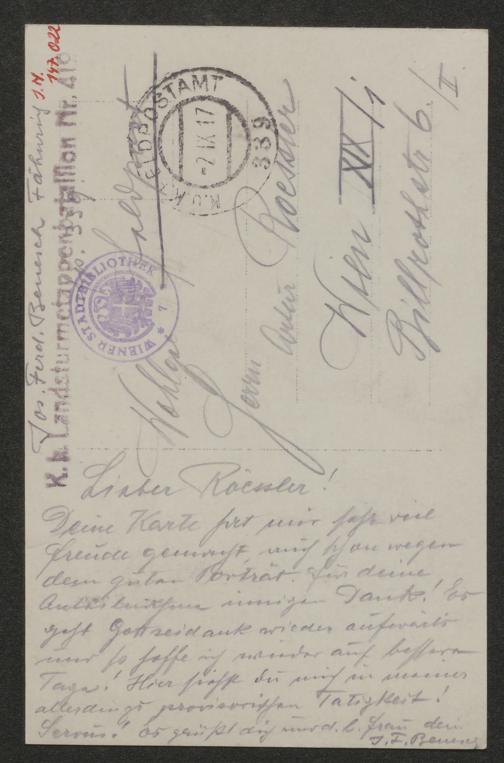 J.N.
147.022
Jos. Ferd. Benesch Fähnrich
K. k. Landsturmetappenbataillon Nr. 416
Feldpost
K.U.K. FELDPOSTAMT
339
-2 IX 17
WIENER STADTBIBLIOTHEK
Wohlgeb.
Herrn Artur Roessler
Wien XIX/1
Billrothstr 6. / II
Lieber Roessler!
Deine Karte hat mir sehr viel
Freude gemacht, auch schon wegen
dem guten Porträt. Für deine
innigen Dank! Es
geht Gottseidank wieder aufwärts
und so hoffe ich wieder auf bessere
Tage! Hier siehst du mich in meiner
allerdings provisorischen Tätigkeit!
Servus! Es grüßt dich und d. l. Frau dein
J. F. Benesch